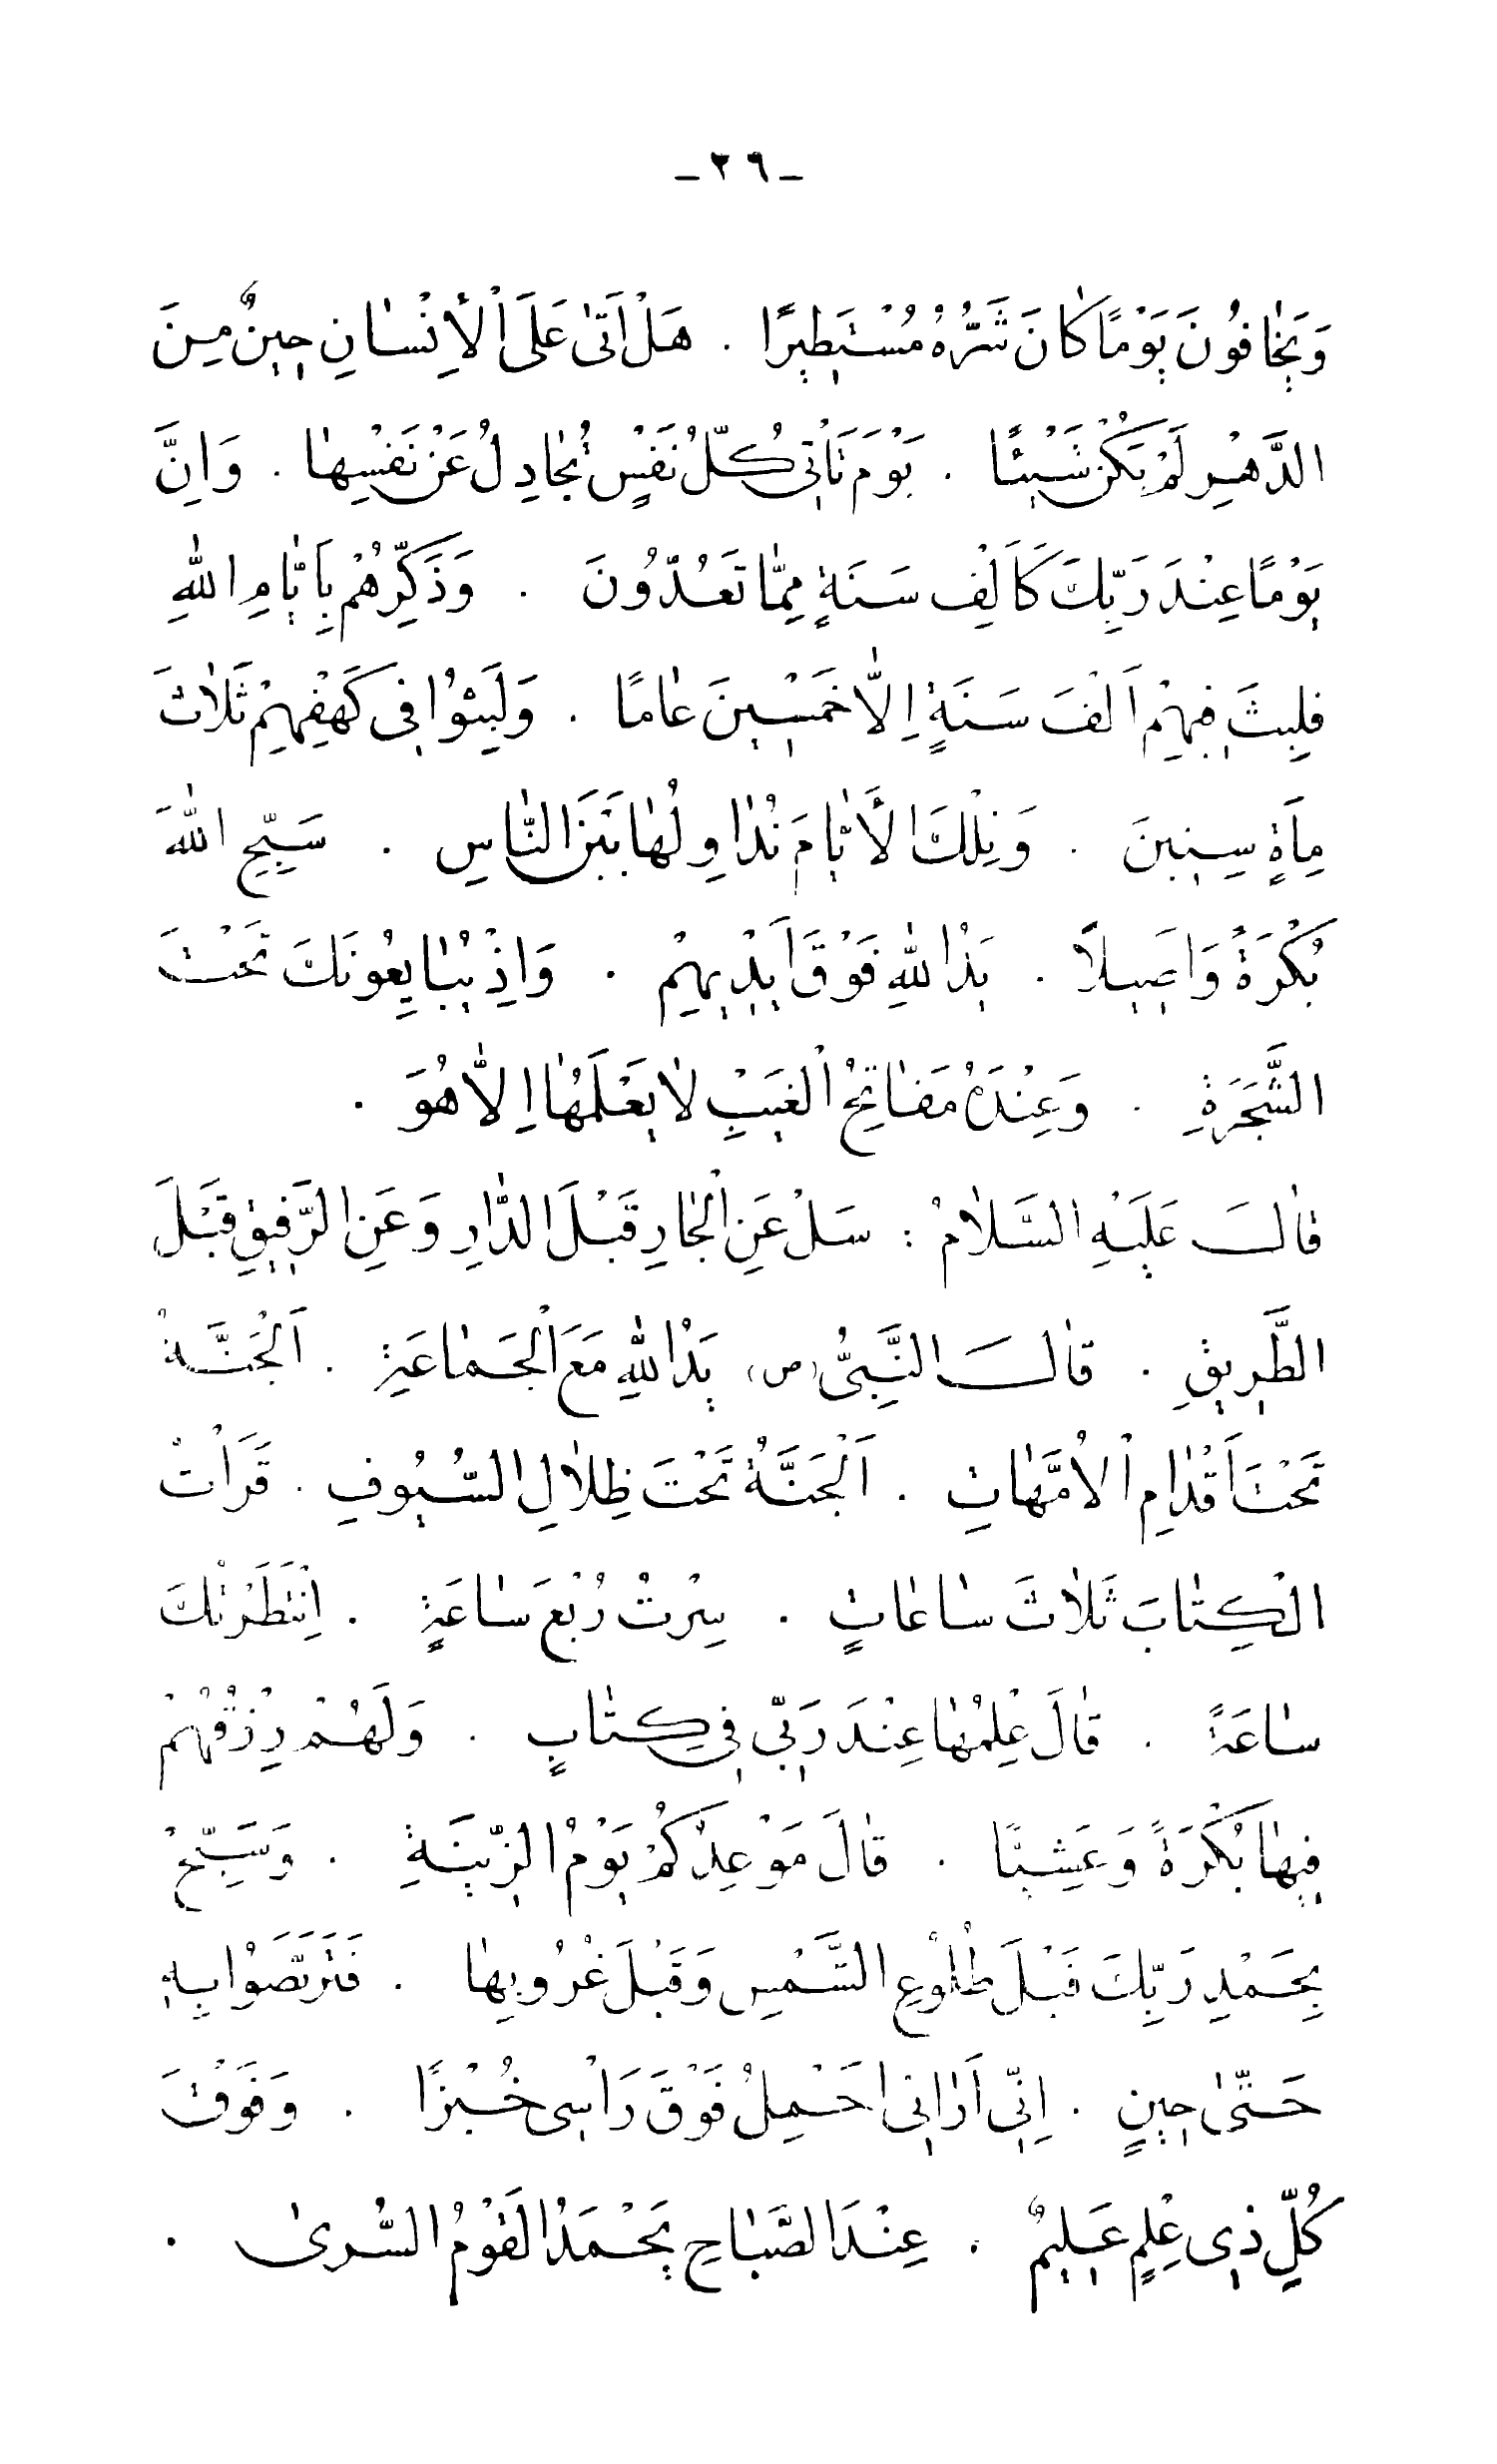 -٢٩-
وَيَخٰافُونَ يَوْمًا كٰانَ شَرُّهُ مُسْتَطِيرًا . هَلْ اَتىٰ عَلَى اْلأِنْسٰانِ حِينٌ مِنَ
الدَّهْرِ لَمْ يَكُنْ شَيْئًا . يَوْمَ تَاْتِى كُلُّ نَفْسٍ تُجٰادِلُ عَنْ نَفْسِهٰا . وَاِنَّ
يَوْمًا عِنْدَ رَبِّكَ كَاَلْفِ سَنَةٍ مِمّٰا تَعُدُّونَ . وَذَكِّرْهُمْ بِاَيّٰامِ اللّٰهِ
فَلَبِثَ فِيهِمْ اَلْفَ سَنَةٍ اِلّٰا خَمْسِينَ عٰامًا . وَلَبِثُوا فِى كَهْفِهِمْ ثَلٰاثَ
مِاَةٍ سِنِينَ . وَتِلْكَ الأَيّٰامُ نُدٰاوِلُهٰا بَيْنَ النّٰاسِ . سَبِّحِ اللّٰهَ
بُكْرَةً وَاَصِيلاً . يَدُ اللّٰهِ فَوْقَ اَيْدِيهِمْ . وَاِذْ يُبٰايِعُونَكَ تَحْتَ
الشَّجَرَةِ . وَعِنْدَهُ مَفٰاتِحُ اْلغَيْبِ لٰا يَعْلَمُهٰا اِلّٰا هُوَ .
قٰالَ عَلَيْهِ السَّلٰامُ : سَلْ عَنِ اْلجٰارِ قَبْلَ الدّٰارِ وَعَنِ الرَّفِيقِ قَبْلَ
الطَّرِيقِ . قٰالَ النَّبِىُّ (ص) يَدُ اللّٰهِ مَعَ اْلجَمٰاعَةِ . اَلْجَنَّةُ
تَحْتَ اَقْدٰامِ اْلاُمَّهٰاتِ . اَلْجَنَّةُ تَحْتَ ظِلٰالِ السُّيُوفِ . قَرَأْتُ
الْكِتٰابَ ثَلٰاثَ سٰاعٰاتٍ . سِرْتُ رُبْعَ سٰاعَةٍ . اِنْتَظَرْتُكَ
سٰاعَةً . قٰالَ عِلْمُهٰا عِنْدَ رَبِّى فِى كِتٰابٍ . وَلَهُمْ رِزْقُهُمْ
فِيهٰا بُكْرَةً وَعَشِيًّا . قٰالَ مَوْعِدُكُمْ يَوْمُ الزِّينَةِ . وَسَبِّحْ
بِحَمْدِ رَبِّكَ قَبْلَ طُلُوعِ الشَّمْسِ وَقَبْلَ غُرُوبِهٰا . فَتَرَبَّصُوا بِهِ
حَتّىٰ حِينٍ . اِنِّى اَرٰانِى اَحْمِلُ فَوْقَ رَاْسِى خُبْزًا . وَفَوْقَ
كُلِّ ذِى عِلْمٍ عَلِيمٌ . عِنْدَ الصَّبٰاحِ يَحْمَدُ الْقَوْمُ السُّرىٰ .